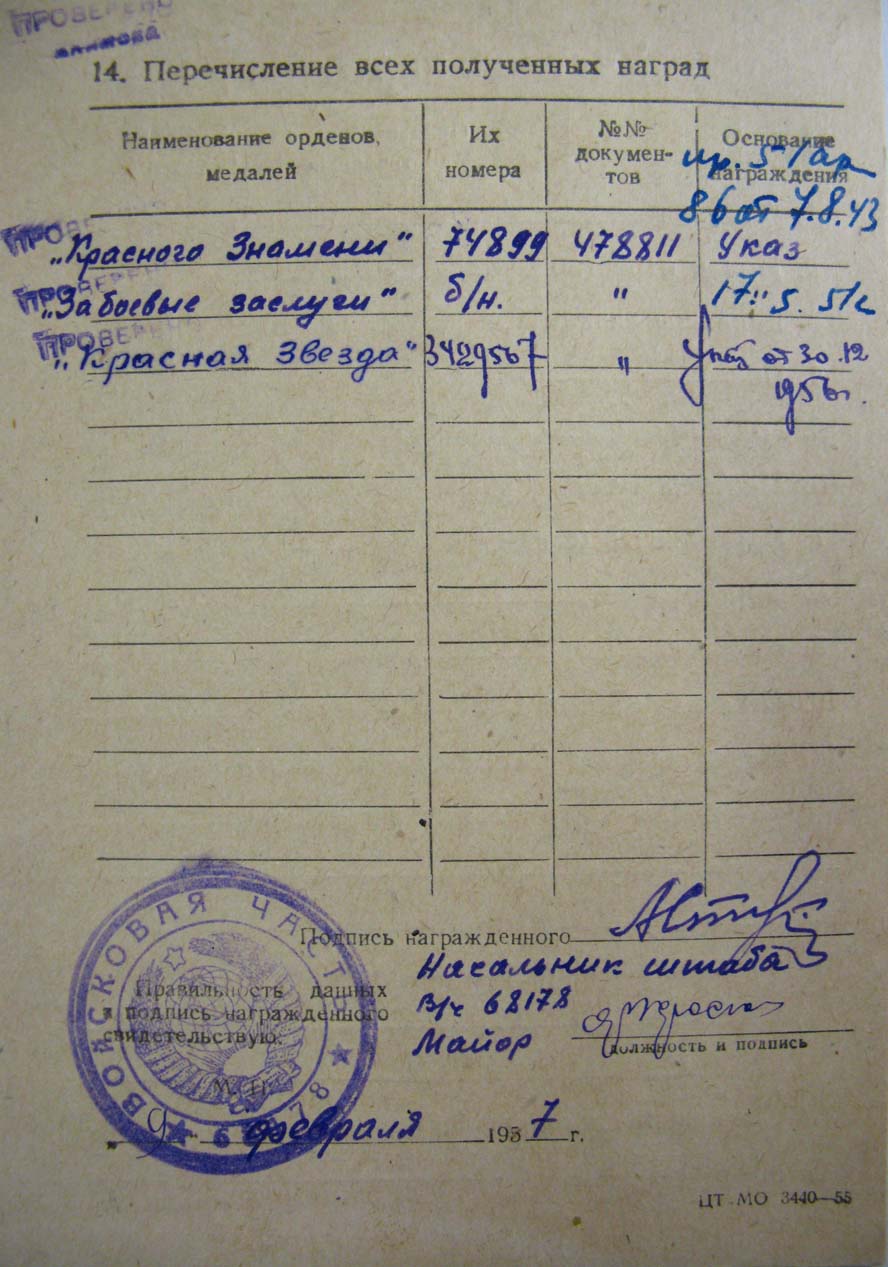 ПРОВЕРЕНО
14. Перечисление всех полученных наград
Наименование орденов, медалей
Их номера
№№ документов
Основание награждения
пр. 51 ап
86 от 7.8.43
ПРОВЕРЕНО
„Красного Знамени" 74899 478811 Указ
ПРОВЕРЕНО
„За боевые заслуги" б/н. " 17. 5. 51г
ПРОВЕРЕНО
„Красная Звезда" 3429567 " Указ от 30.12
1956г.
Подпись награжденного
Правильность данных
и подпись награжденного
свидетельствую.
Начальник штаба
в/ч 68178
Майор
должность и подпись
М. П.
ВОЙСКОВАЯ ЧАСТЬ
68178
9 февраля 1957 г.
ЦТ МО 3440—55